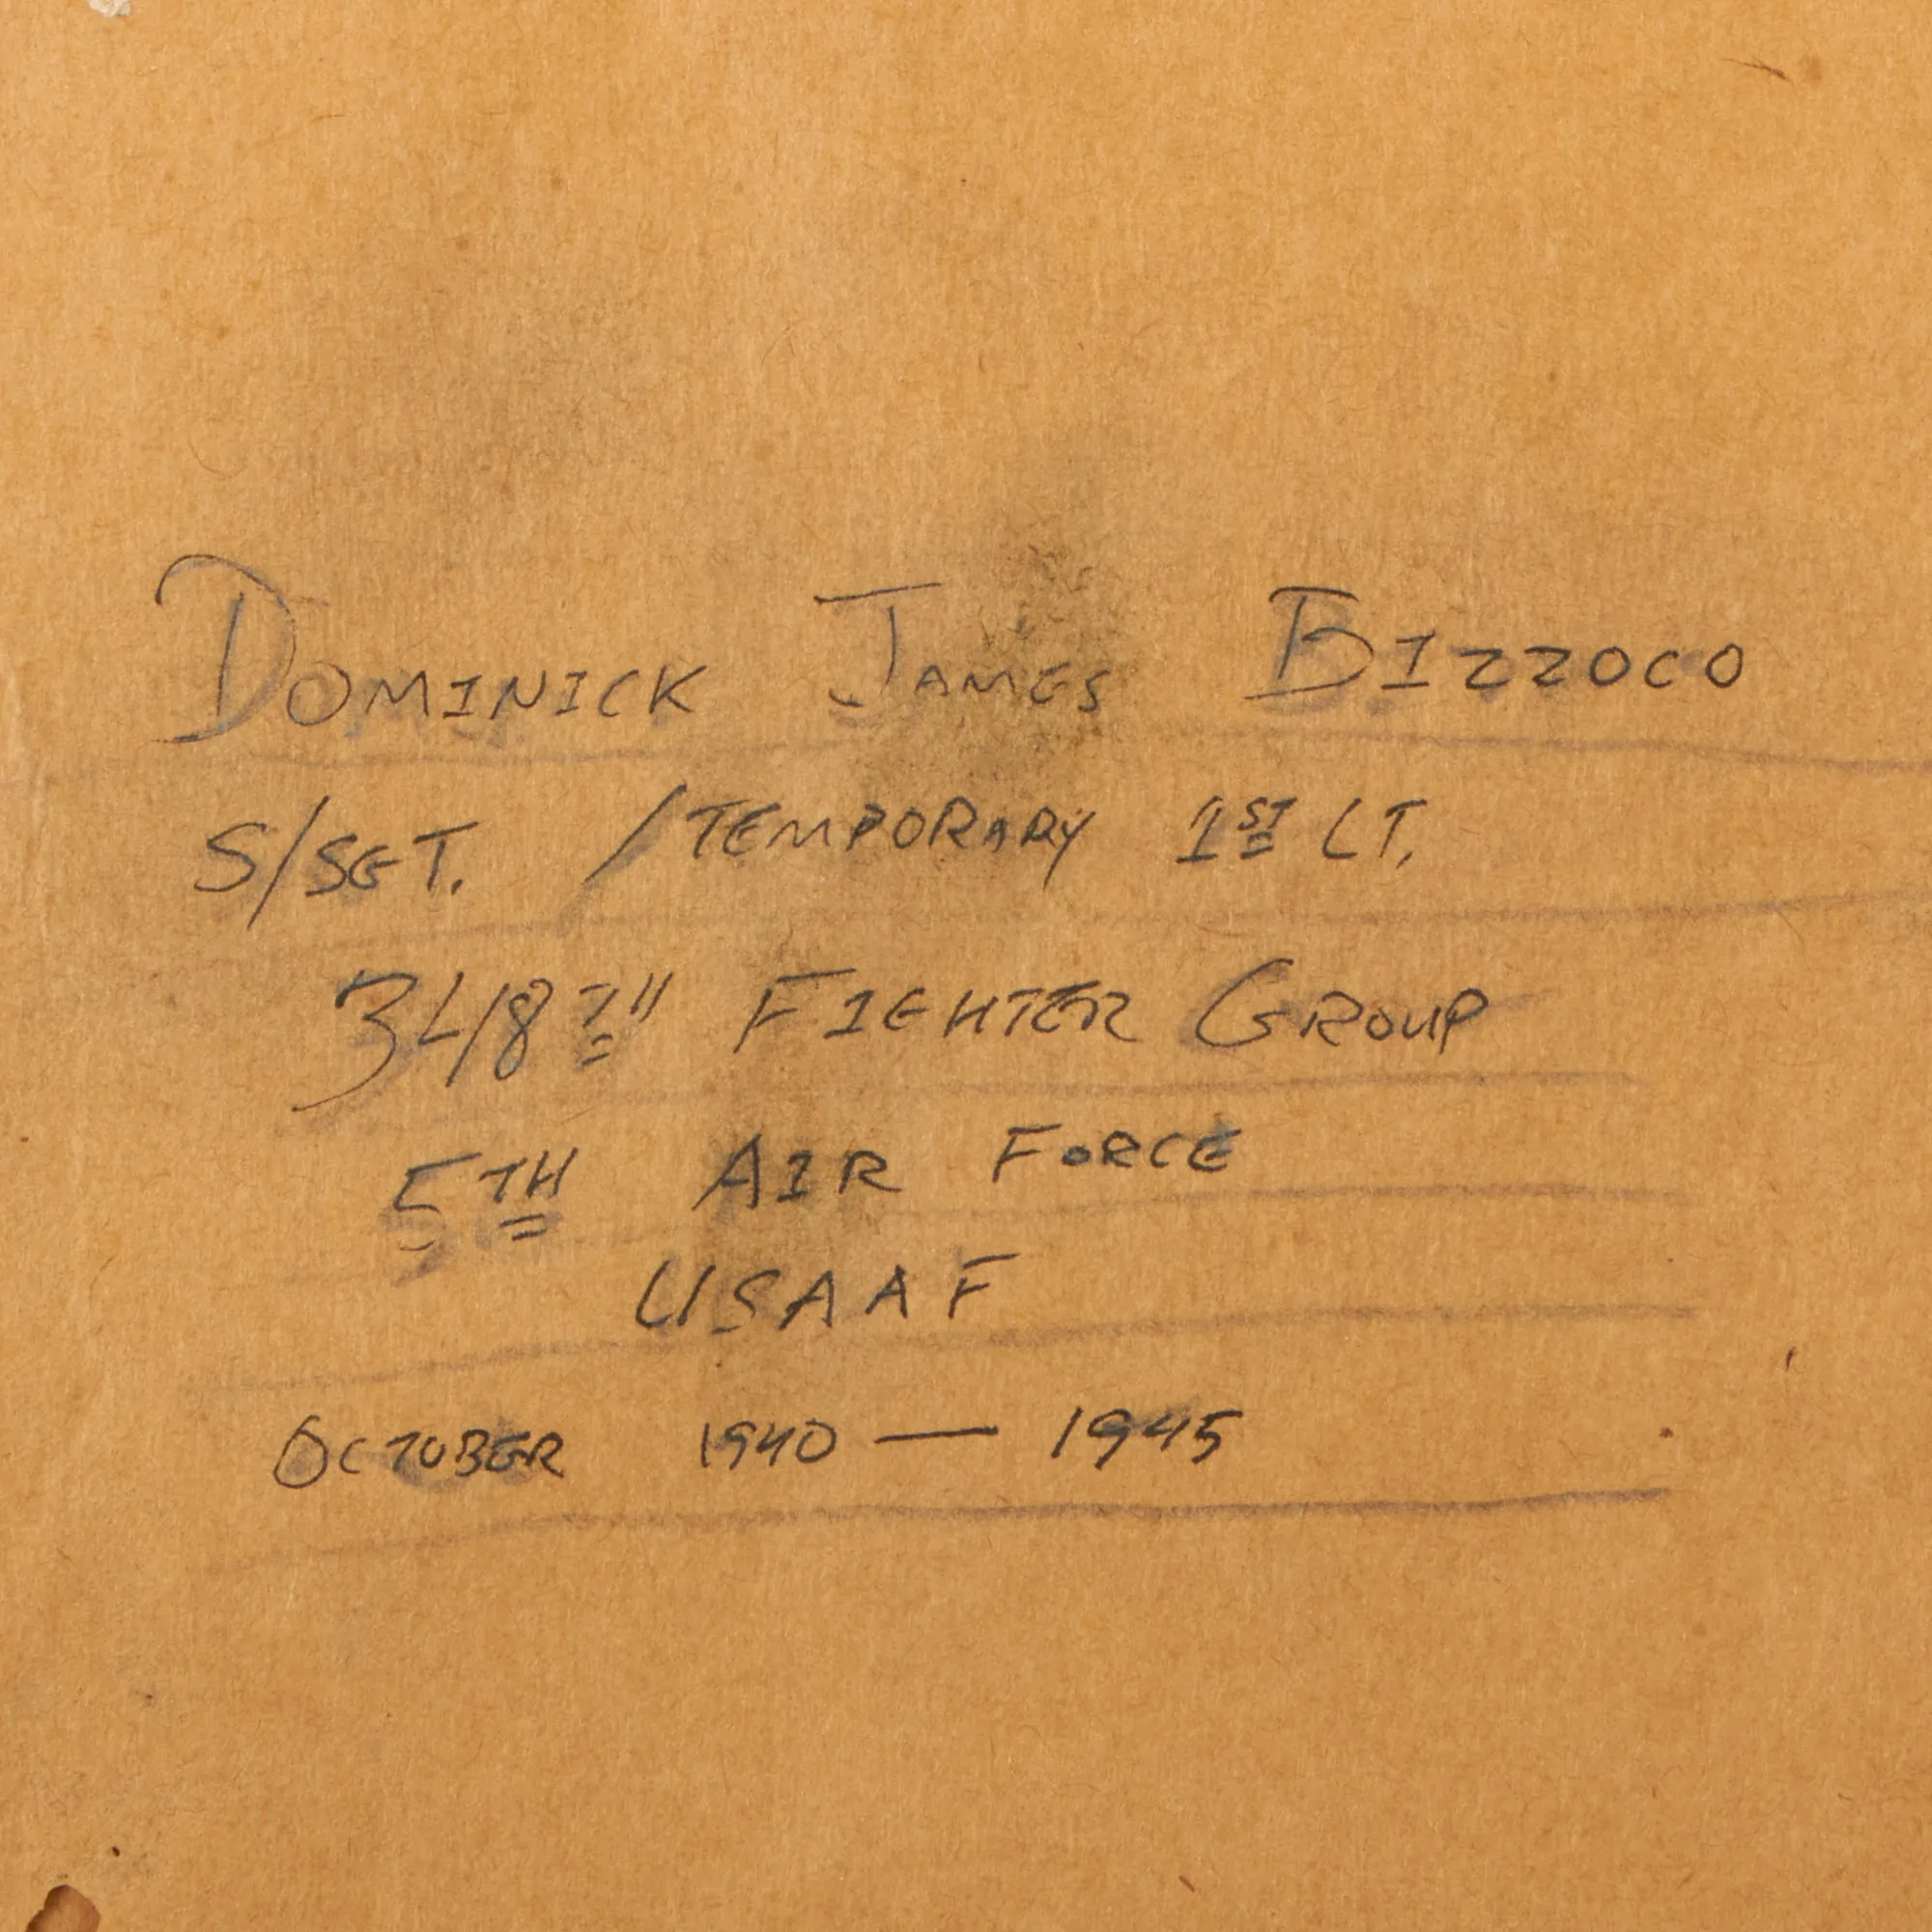 DOMINICK JAMES BIZZOCO
S/SGT. /TEMPORARY 1ST LT.
348TH FIGHTER GROUP
5TH AIR FORCE
USAAF
OCTOBER 1940 — 1945